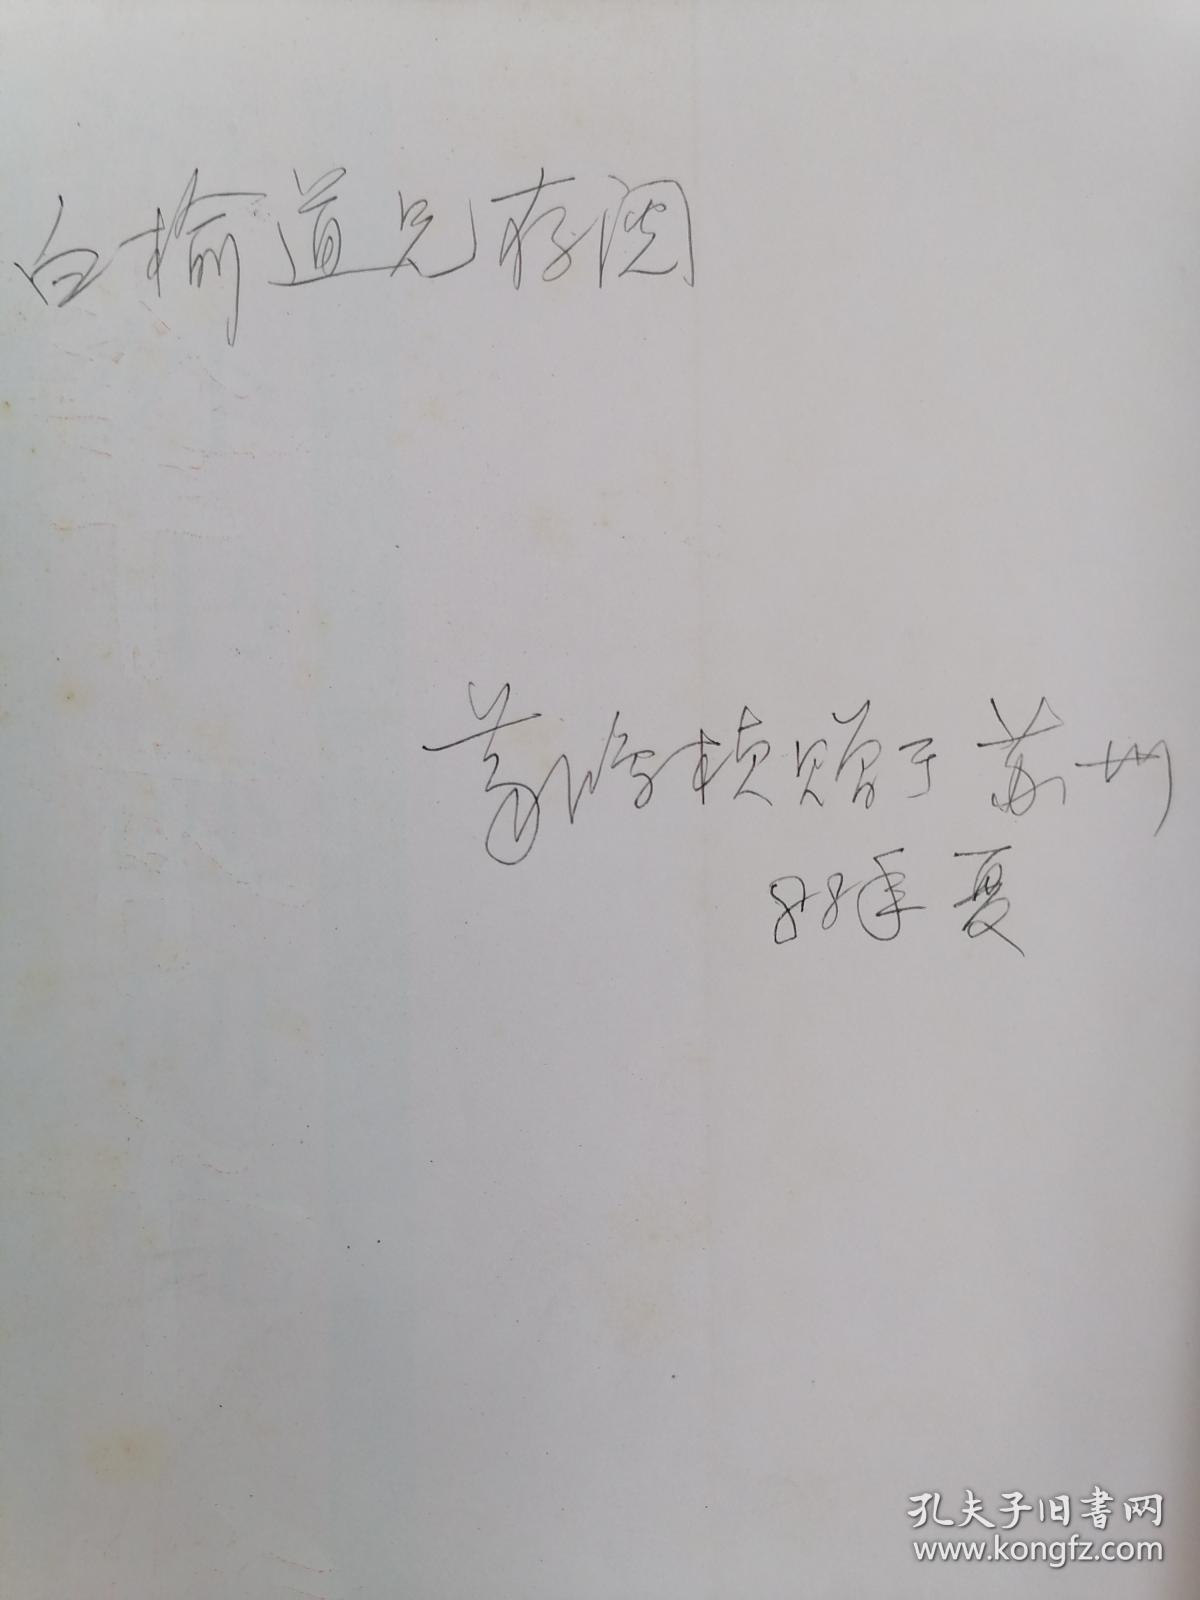 白榆道兄存阅
桢赠于苏州
88年夏
孔夫子旧书网
www.kongfz.com